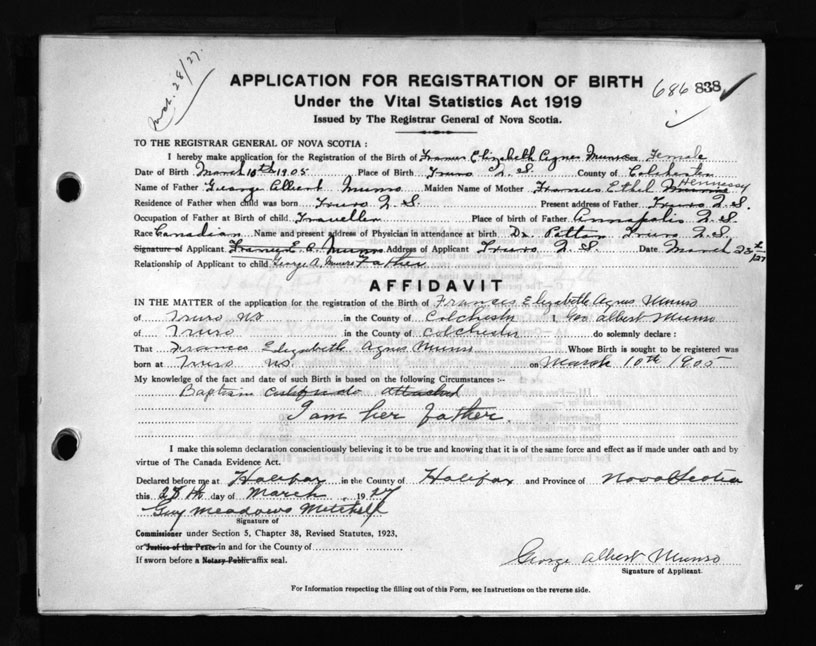 Mch. 28/27.
APPLICATION FOR REGISTRATION OF BIRTH
686 838
Under the Vital Statistics Act 1919
Issued by The Registrar General of Nova Scotia.
TO THE REGISTRAR GENERAL OF NOVA SCOTIA :
I hereby make application for the Registration of the Birth of Frances Elizabeth Agnes Munro Female
Date of Birth March 10th 1905 Place of Birth Truro N.S. County of Colchester
Name of Father George Albert Munro Maiden Name of Mother Frances Ethel Hennessy
Residence of Father when child was born Truro N.S. Present address of Father Truro N.S.
Occupation of Father at Birth of child Traveller Place of birth of Father Annapolis N.S.
Race Canadian Name and present address of Physician in attendance at birth Dr. Patton Truro N.S.
Signature of Applicant Frances E. A. Munro Address of Applicant Truro N.S. Date March 23rd/27
Relationship of Applicant to child George A. Munro Father
AFFIDAVIT
IN THE MATTER of the application for the registration of the Birth of Frances Elizabeth Agnes Munro
of Truro NS in the County of Colchester I, Geo Albert Munro
of Truro in the County of Colchester do solemnly declare :
That Frances Elizabeth Agnes Munro Whose Birth is sought to be registered was
born at Truro NS. on March 10th 1905
My knowledge of the fact and date of such Birth is based on the following Circumstances :-
Baptism certificate attached
I am her father.
I make this solemn declaration conscientiously believing it to be true and knowing that it is of the same force and effect as if made under oath and by
virtue of The Canada Evidence Act.
Declared before me at Halifax in the County of Halifax and Province of Nova Scotia
this 28th day of March , 1927
Guy Meadows Mitchell
Signature of
Commissioner under Section 5, Chapter 38, Revised Statutes, 1923,
or Justice of the Peace in and for the County of
If sworn before a Notary Public affix seal.
George Albert Munro
Signature of Applicant.
For Information respecting the filling out of this Form, see Instructions on the reverse side.